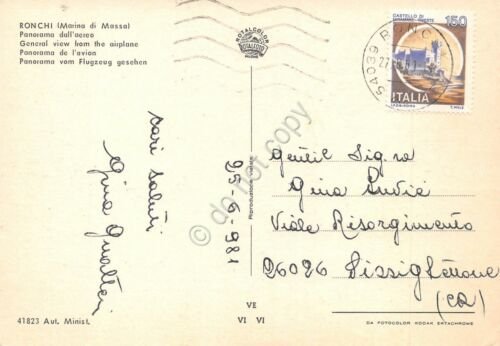 RONCHI (Marina di Massa)
Panorama dall'aereo
General view from the airplane
Panorama de l'avion
Panorama vom Flugzeug gesehen
ROTALCOLOR
ROTALCOLOR
MILANO
CASTELLO DI
MIRAMARE - TRIESTE
150
ITALIA
54039 RONCHI
27
cari saluti
Gina
25-6-981
Riproduzione vietata
Gentil Sig.ra
Gina
Viale Risorgimento
26026 Pizzighettone
(CR)
41823 Aut. Minist.
VE
VI VI
DA FOTOCOLOR KODAK EKTACHROME
do not copy